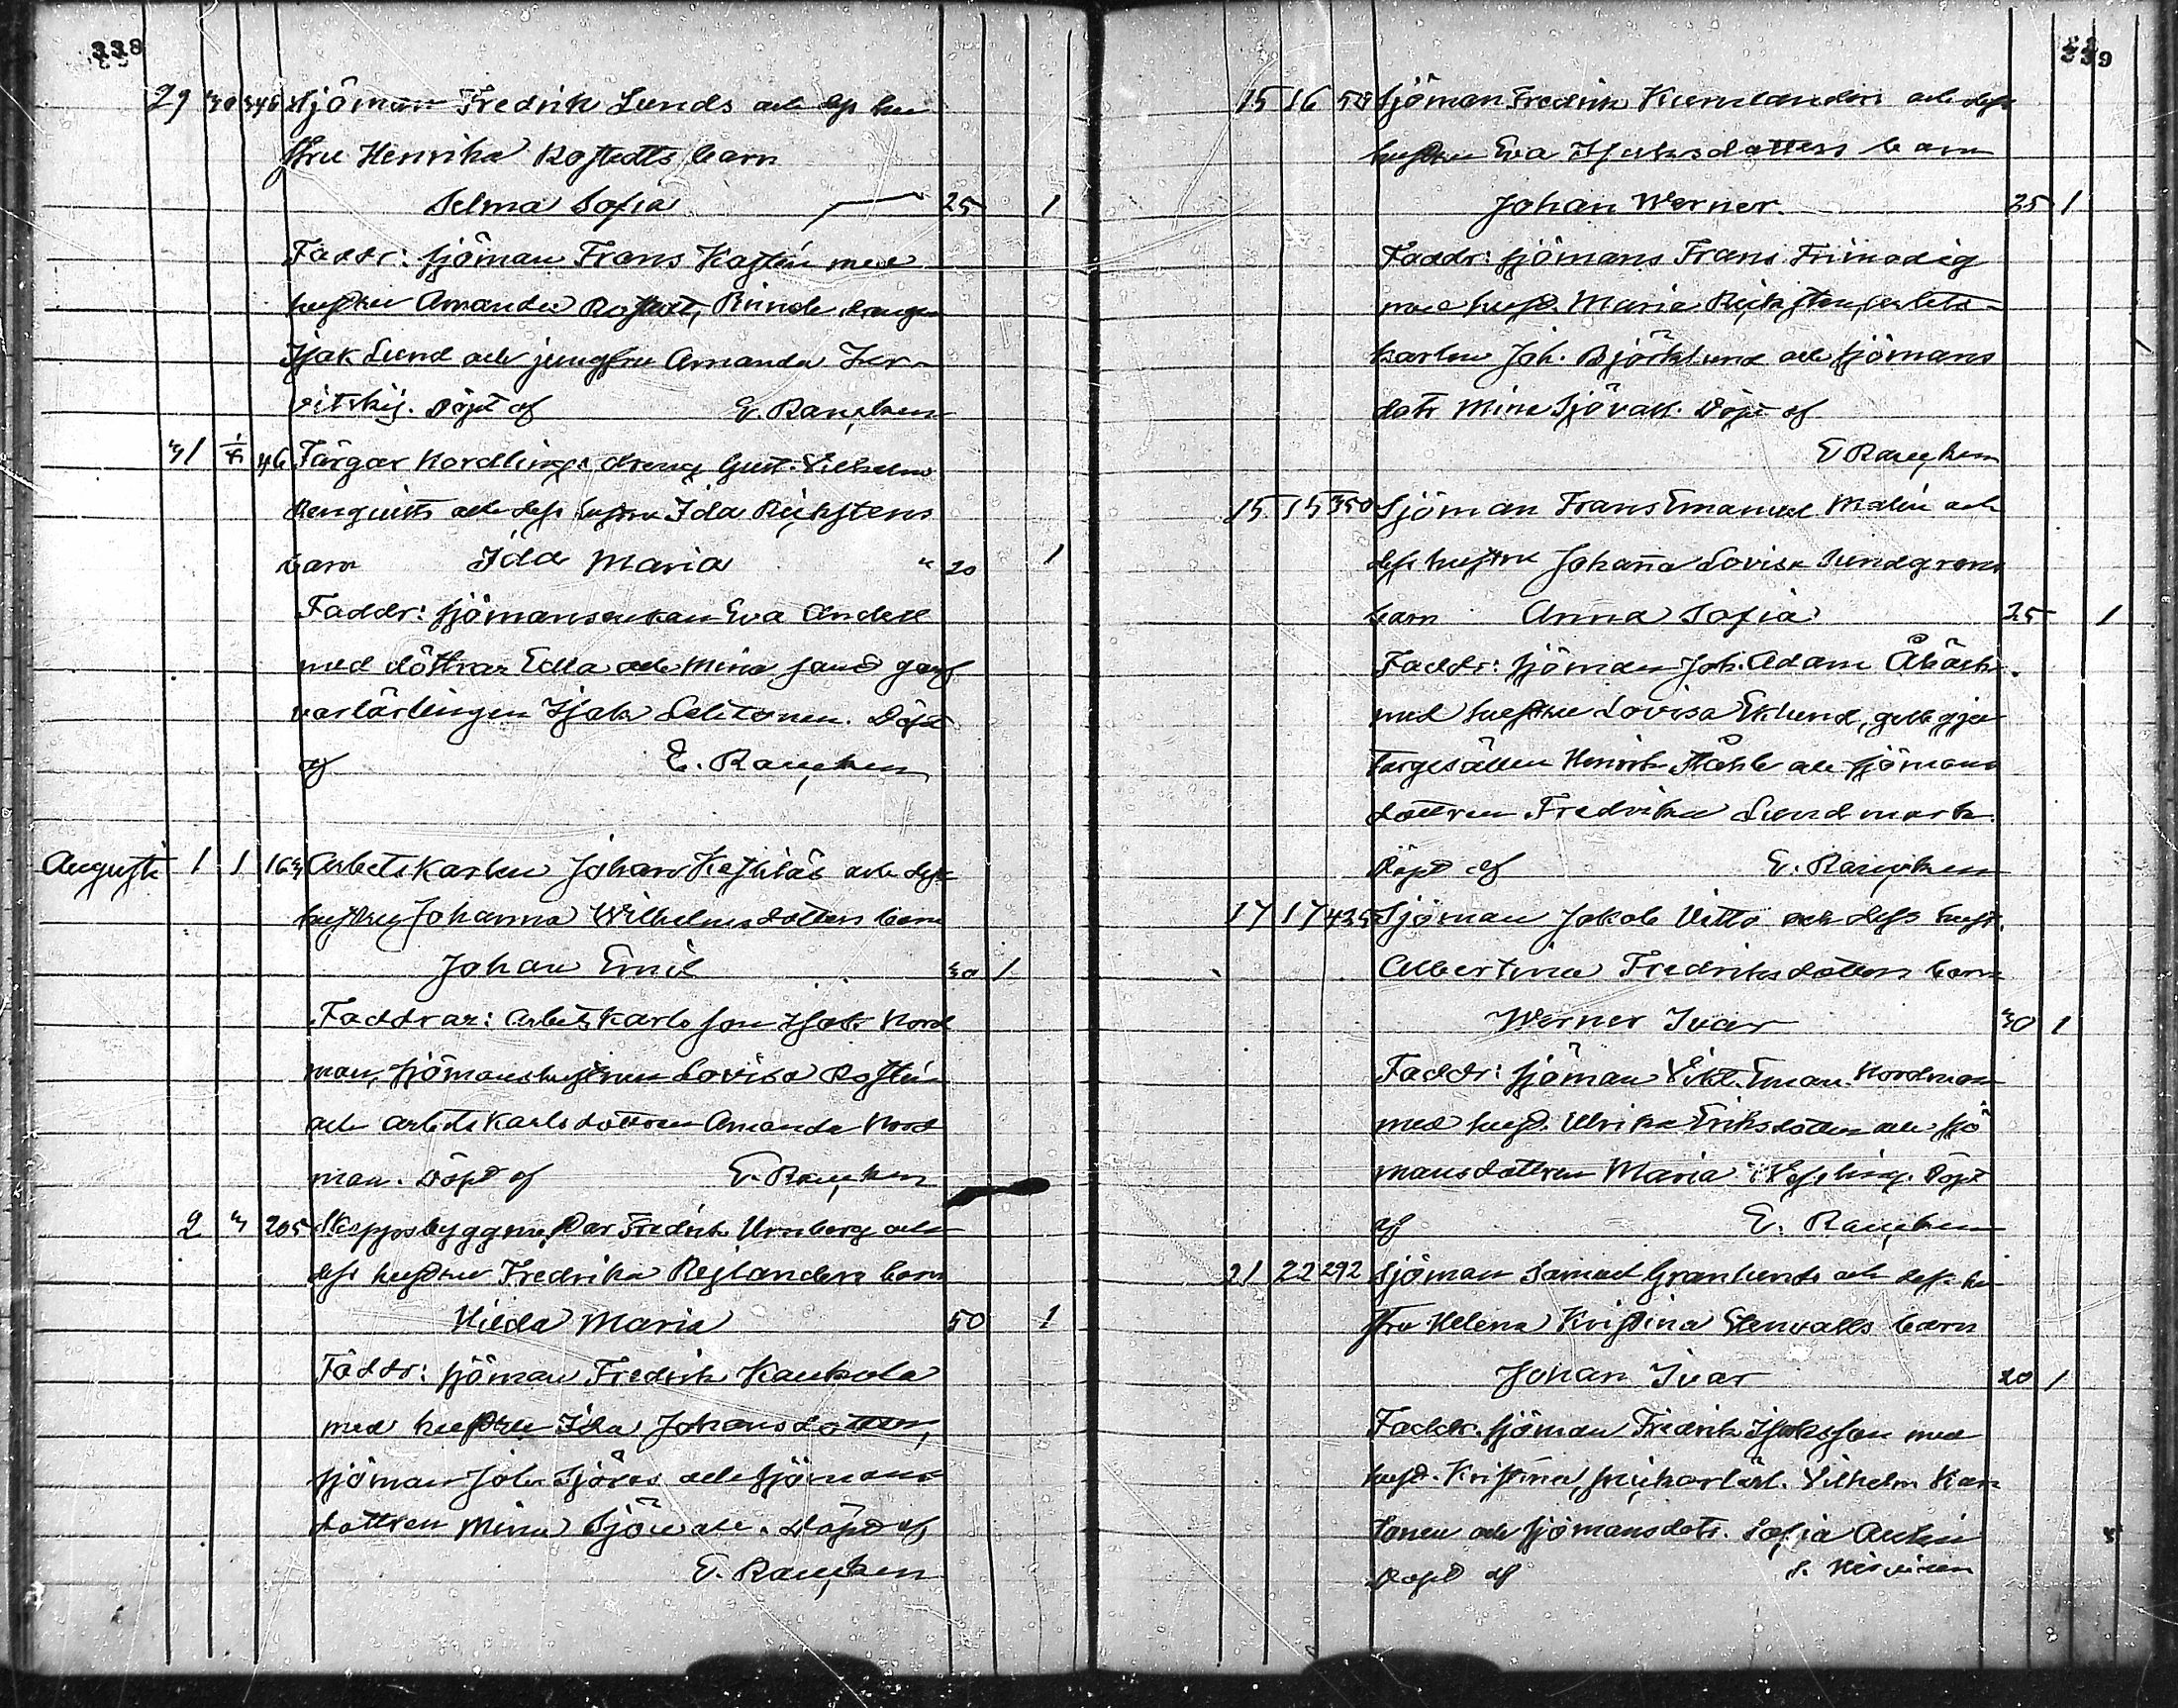 338
29 30 346 Sjöman Fredrik Lunds och dess hu
stru Henrika Rostedts barn
Selma Sofia 25 1
Faddr: sjöman Frans Kastén med
hustru Amanda Rostedt, Runde drengen
Isak Lund och jungfru Amanda Jur-
vitskij. Döpt af E. Rancken
31 1/8 46 Färgar Nordlings dreng Gust. Vilhelm
Renquists och dess hustru Ida Rickstens
barn Ida Maria " 20 1
Faddr: sjömansenkan Eva Andell
med döttrar Edla och Mina samt garf
varlärlingen Isak Lelitonen. Döpt
af E. Rancken
Augusti 1 1 163 Arbetskarlen Johan Keskiläs och dess
hustru Johanna Wilhelmsdotters barn
Johan Emil 30 1
Faddrar: Arbetskarlsson Isak Nord
man, sjömanshustrun Lovisa Rostén
och arbetskarlsdottren Amanda Nord
man. Döpt af E. Rancken
2 3 205 Skeppsbyggmestar Fredrik Urnberg och
dess hustru Fredrika Rejlanders barn
Hilda Maria 50 1
Faddr: sjöman Fredrik Kaukola
med hustru Ida Johansdotter,
sjöman Joh. Sjöros och sjömans
dottren Mina Sjövall. Döpt af
E. Rancken
339
15 16 58 Sjöman Fredrik Kumlanders och dess
hustru Eva Isaksdotters barn
Johan Werner. 25 1
Faddr: sjömans Frans Frimodig
med hust. Maria Ricksten, arbets-
karlen Joh. Björklund och sjömans
dotr Mina Sjövall. Döpt af
E Rancken
15 15 350 Sjöman Frans Emanuel Malin och
dess hustru Johanna Lovisa Sundgrens
barn Anna Sofia 25 1
Faddr: sjöman Joh. Adam Åbäck
med hustru Lovisa Eklund, gelbgju
targesällen Henrik Ståhle och sjömans
dottren Fredrika Lundmark.
Döpt af E. Rancken
17 17 435 Sjöman Jakob Vitto och dess hust.
Albertina Fredriksdotters barn
Werner Ivar 30 1
Faddr: sjöman Vikt. Eman. Nordman
med hust. Ulrika Eriksdotter och sjö
mansdottren Maria Wesling. Döpt
af E. Rancken
21 22 292 Sjöman Samuel Granlunds och dess hu
stru Helena Kristina Stenvalls barn
Johan Ivar 20 1
Faddr. sjöman Fredrik Isaksson med
hust. Kristina, snickarlärl. Vilhelm Kan
tonen och sjömansdotr. Sofia Antin
Döpt af